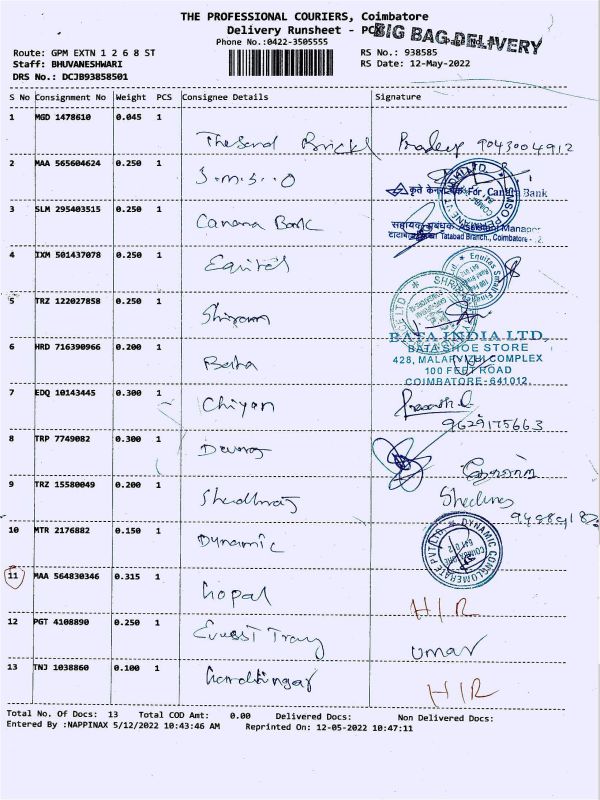 THE PROFESSIONAL COURIERS, Coimbatore
Delivery Runsheet - PCS
BIG BAG DELIVERY
Phone No.:0422-3505555
Route: GPM EXTN 1 2 6 8 ST
RS No.: 938585
Staff: BHUVANESHWARI
RS Date: 12-May-2022
DRS No.: DCJB93858501
S No Consignment No Weight PCS Consignee Details Signature
1 MGD 1478610 0.045 1
Pradeep 9043004912
2 MAA 565604624 0.250 1
S.M.S.O
For Canara Bank
3 SLM 295403515 0.250 1
Canara Bank
Tatabad Branch., Coimbatore - 12.
4 IXM 501437078 0.250 1
Equitas
5 TRZ 122027858 0.250 1
Shriram
BATA INDIA LTD.
6 HRD 716390966 0.200 1
Bata
BATA SHOE STORE
428, MALARVIZHI COMPLEX
100 FEET ROAD
COIMBATORE-641012.
7 EDQ 10143445 0.300 1
Chiyan
9629175663
8 TRP 7749082 0.300 1
Devaraj
9 TRZ 15580049 0.200 1
10 MTR 2176882 0.150 1
Dynamic
DYNAMIC CONGLOMERATE PVT LTD.
11 MAA 564830346 0.315 1
Gopal
H/R
12 PGT 4108890 0.250 1
Umar
13 TNJ 1038860 0.100 1
H/R
Total No. Of Docs: 13 Total COD Amt: 0.00 Delivered Docs: Non Delivered Docs:
Entered By :NAPPINAX 5/12/2022 10:43:46 AM Reprinted On: 12-05-2022 10:47:11